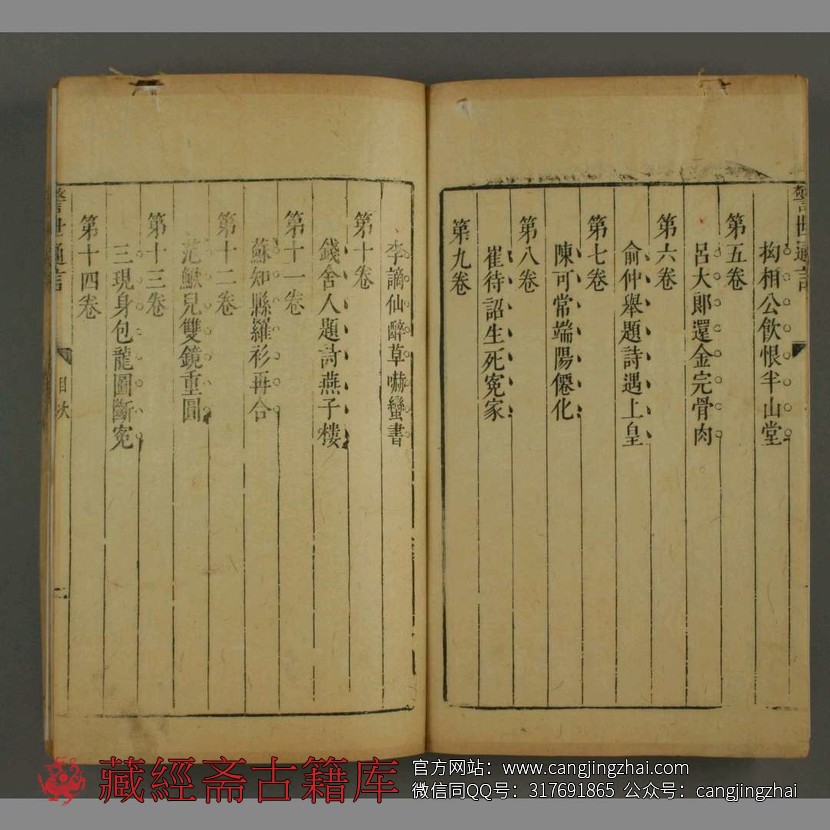 警世通言
拗相公飲恨半山堂
第五卷
呂大郎還金完骨肉
第六卷
俞仲舉題詩遇上皇
第七卷
陳可常端陽僊化
第八卷
崔待詔生死冤家
第九卷
李謫仙醉草嚇蠻書
第十卷
錢舍人題詩燕子樓
第十一卷
蘇知縣羅衫再合
第十二卷
范鰍兒雙鏡重圓
第十三卷
三現身包龍圖斷冤
第十四卷
警世通言 目次 二
藏經斋古籍库
官方网站：www.cangjingzhai.com
微信同QQ号：317691865 公众号：cangjingzhai